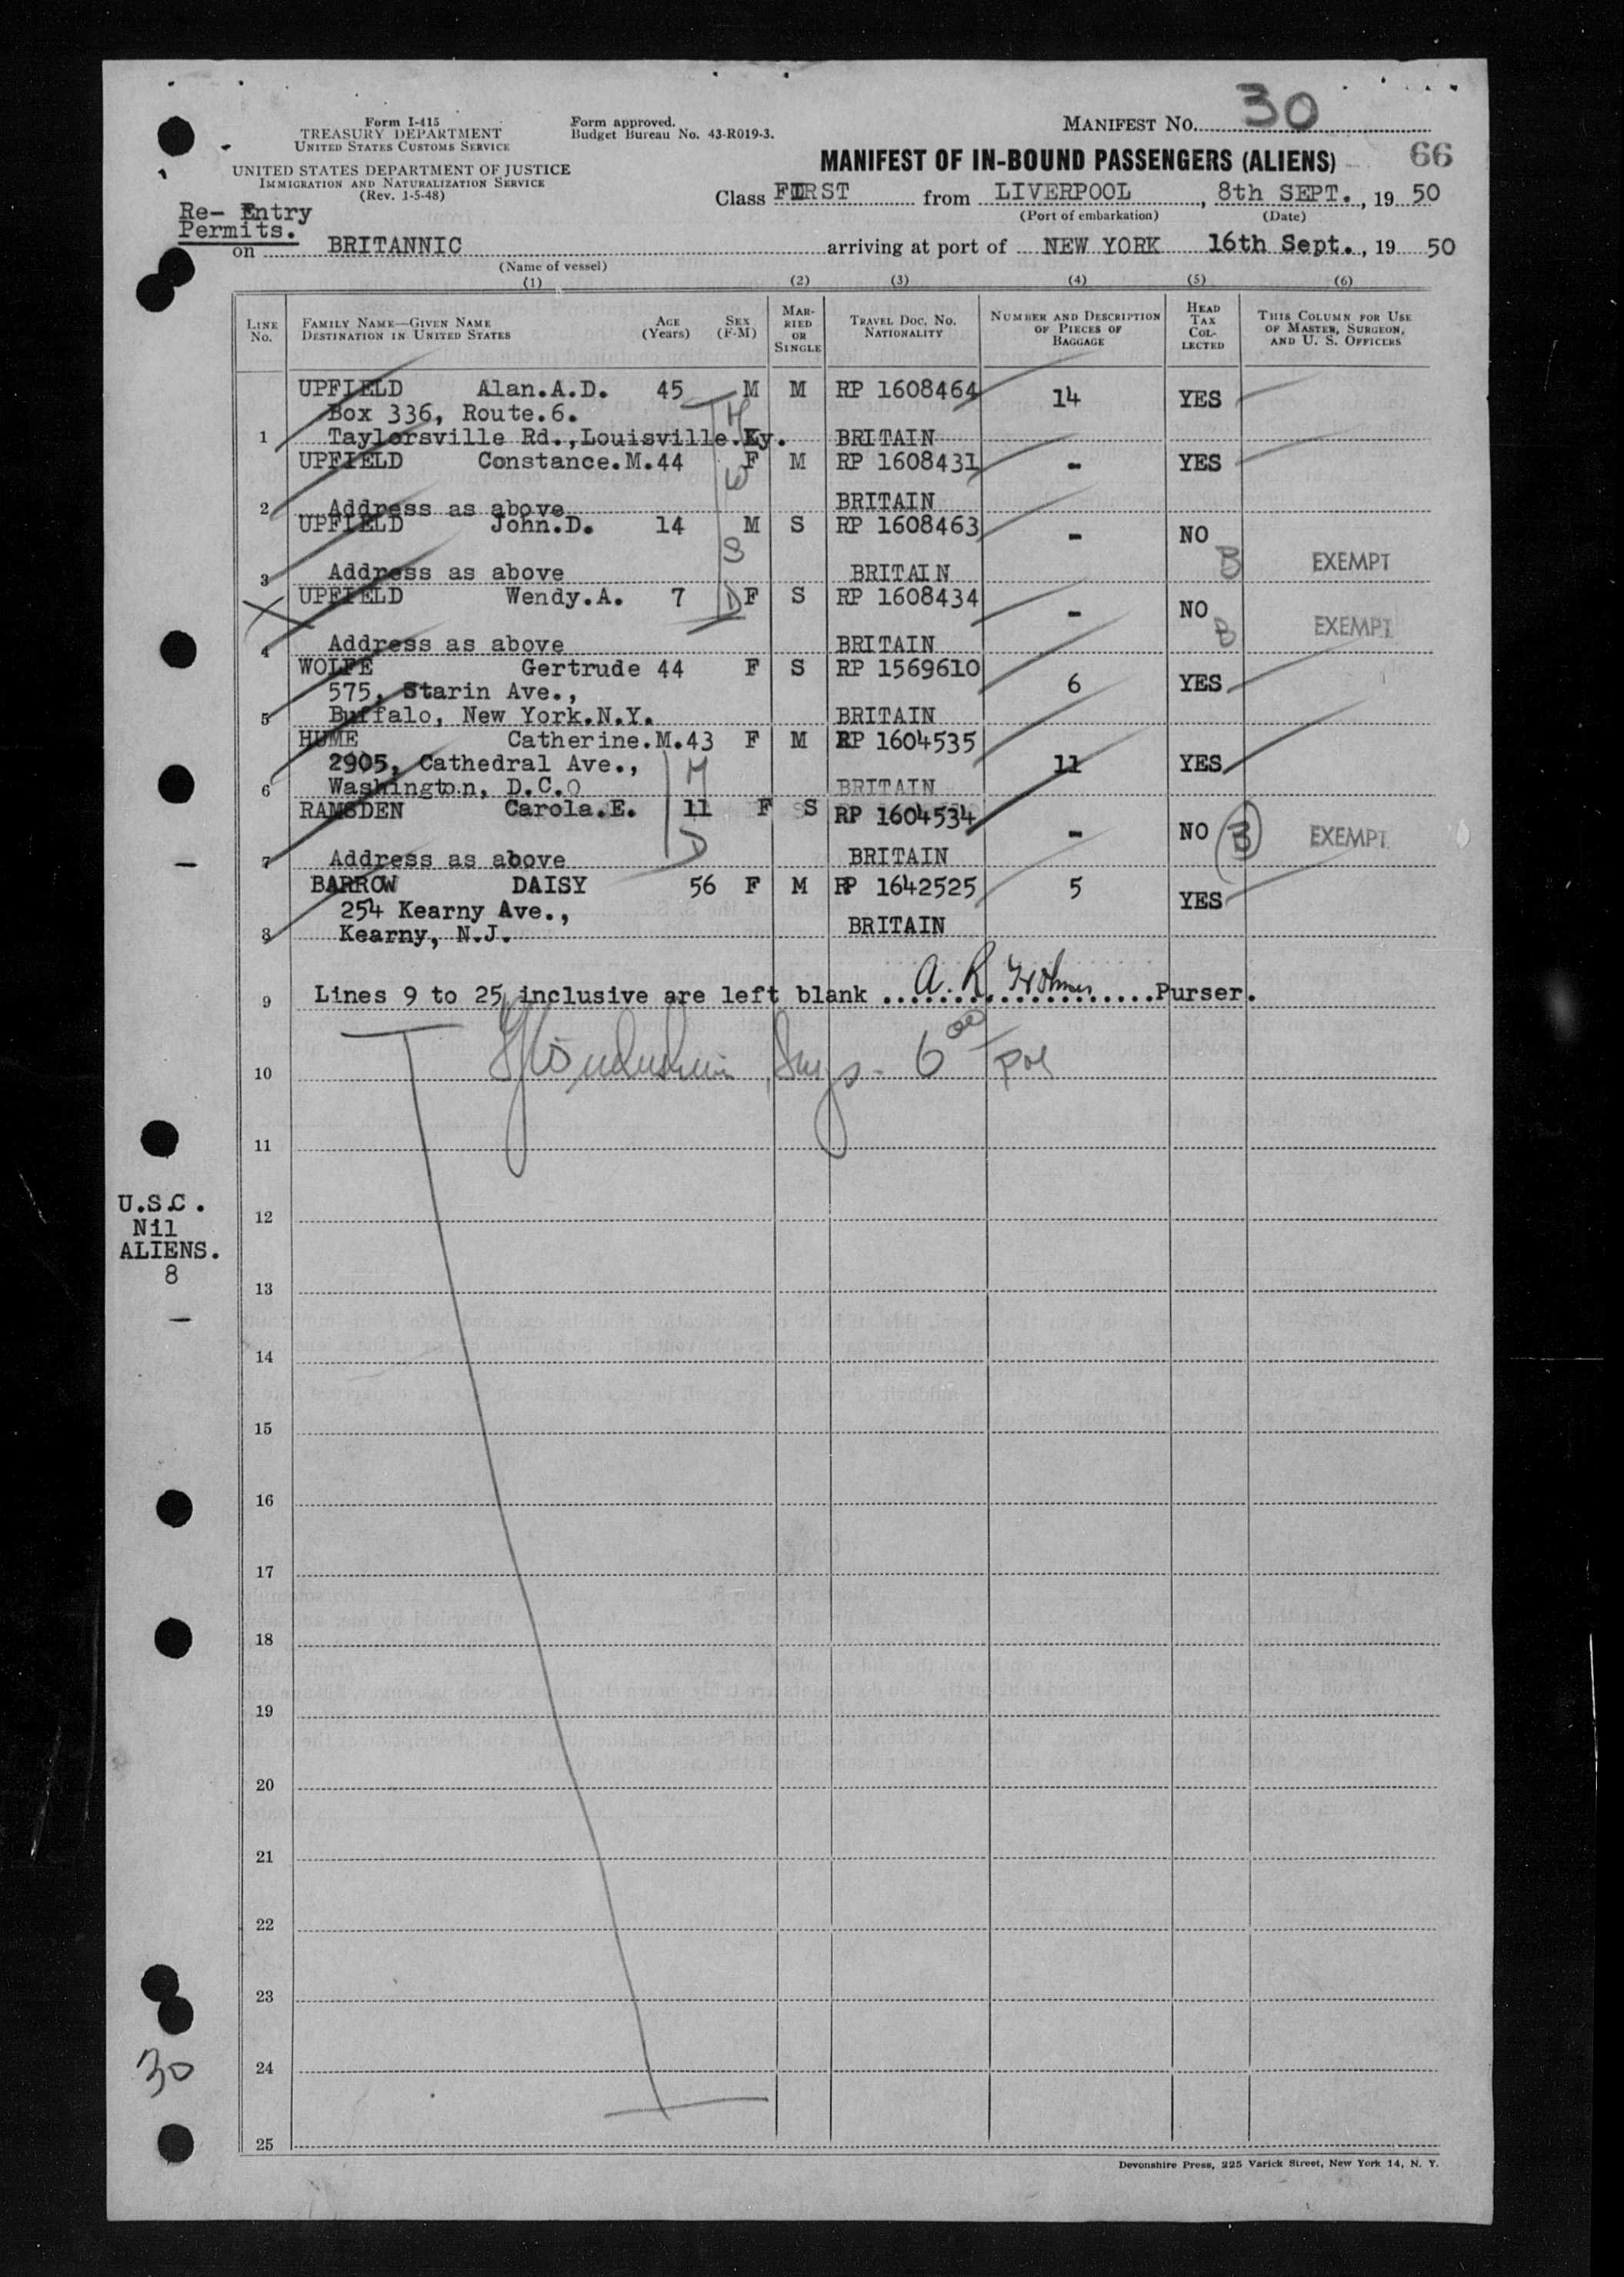 Form I-415
TREASURY DEPARTMENT
UNITED STATES CUSTOMS SERVICE
UNITED STATES DEPARTMENT OF JUSTICE
IMMIGRATION AND NATURALIZATION SERVICE
(Rev. 1-5-48)
Form approved.
Budget Bureau No. 43-R019-3.
MANIFEST NO. 30
MANIFEST OF IN-BOUND PASSENGERS (ALIENS) 66
Class FIRST from LIVERPOOL, 8th SEPT., 19 50
(Port of embarkation) (Date)
Re- Entry
Permits.
on BRITANNIC arriving at port of NEW YORK 16th Sept., 19 50
(Name of vessel)
(1) (2) (3) (4) (5) (6)
LINE No. FAMILY NAME—GIVEN NAME DESTINATION IN UNITED STATES AGE (Years) SEX (F-M) MARRIED OR SINGLE TRAVEL DOC. NO. NATIONALITY NUMBER AND DESCRIPTION OF PIECES OF BAGGAGE HEAD TAX COLLECTED THIS COLUMN FOR USE OF MASTER, SURGEON, AND U. S. OFFICERS
UPFIELD Alan.A.D. 45 M M RP 1608464 14 YES
Box 336, Route.6. H
1 Taylorsville Rd.,Louisville.Ky. BRITAIN
UPFIELD Constance.M.44 F M RP 1608431 - YES
W
2 Address as above BRITAIN
UPFIELD John.D. 14 M S RP 1608463 - NO
S B EXEMPT
3 Address as above BRITAIN
UPFIELD Wendy.A. 7 D F S RP 1608434 - NO
B EXEMPT
4 Address as above BRITAIN
WOLFE Gertrude 44 F S RP 1569610 6 YES
575, Starin Ave.,
5 Buffalo, New York.N.Y. BRITAIN
HUME Catherine.M.43 F M RP 1604535 11 YES
2905, Cathedral Ave., M
6 Washington, D.C. BRITAIN
RAMSDEN Carola.E. 11 F S RP 1604534 - NO B EXEMPT
D
7 Address as above BRITAIN
BARROW DAISY 56 F M RP 1642525 5 YES
254 Kearny Ave.,
8 Kearny, N.J. BRITAIN
9 Lines 9 to 25 inclusive are left blank A. R. Holmes Purser.
10 Insp. 6 00
11
U.S.C.
Nil
ALIENS.
8
12
13
14
15
16
17
18
19
20
21
22
23
24
30
25
Devonshire Press, 225 Varick Street, New York 14, N. Y.